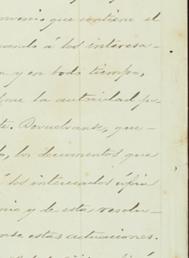 convenio que contiene el
uando á los interesa-
a y en todo tiempo,
me la autoridad ju-
te. Devuélvanse, que-
do, los documentos que
á los interesados
nio y de esta resolu-
nse estas actuaciones.